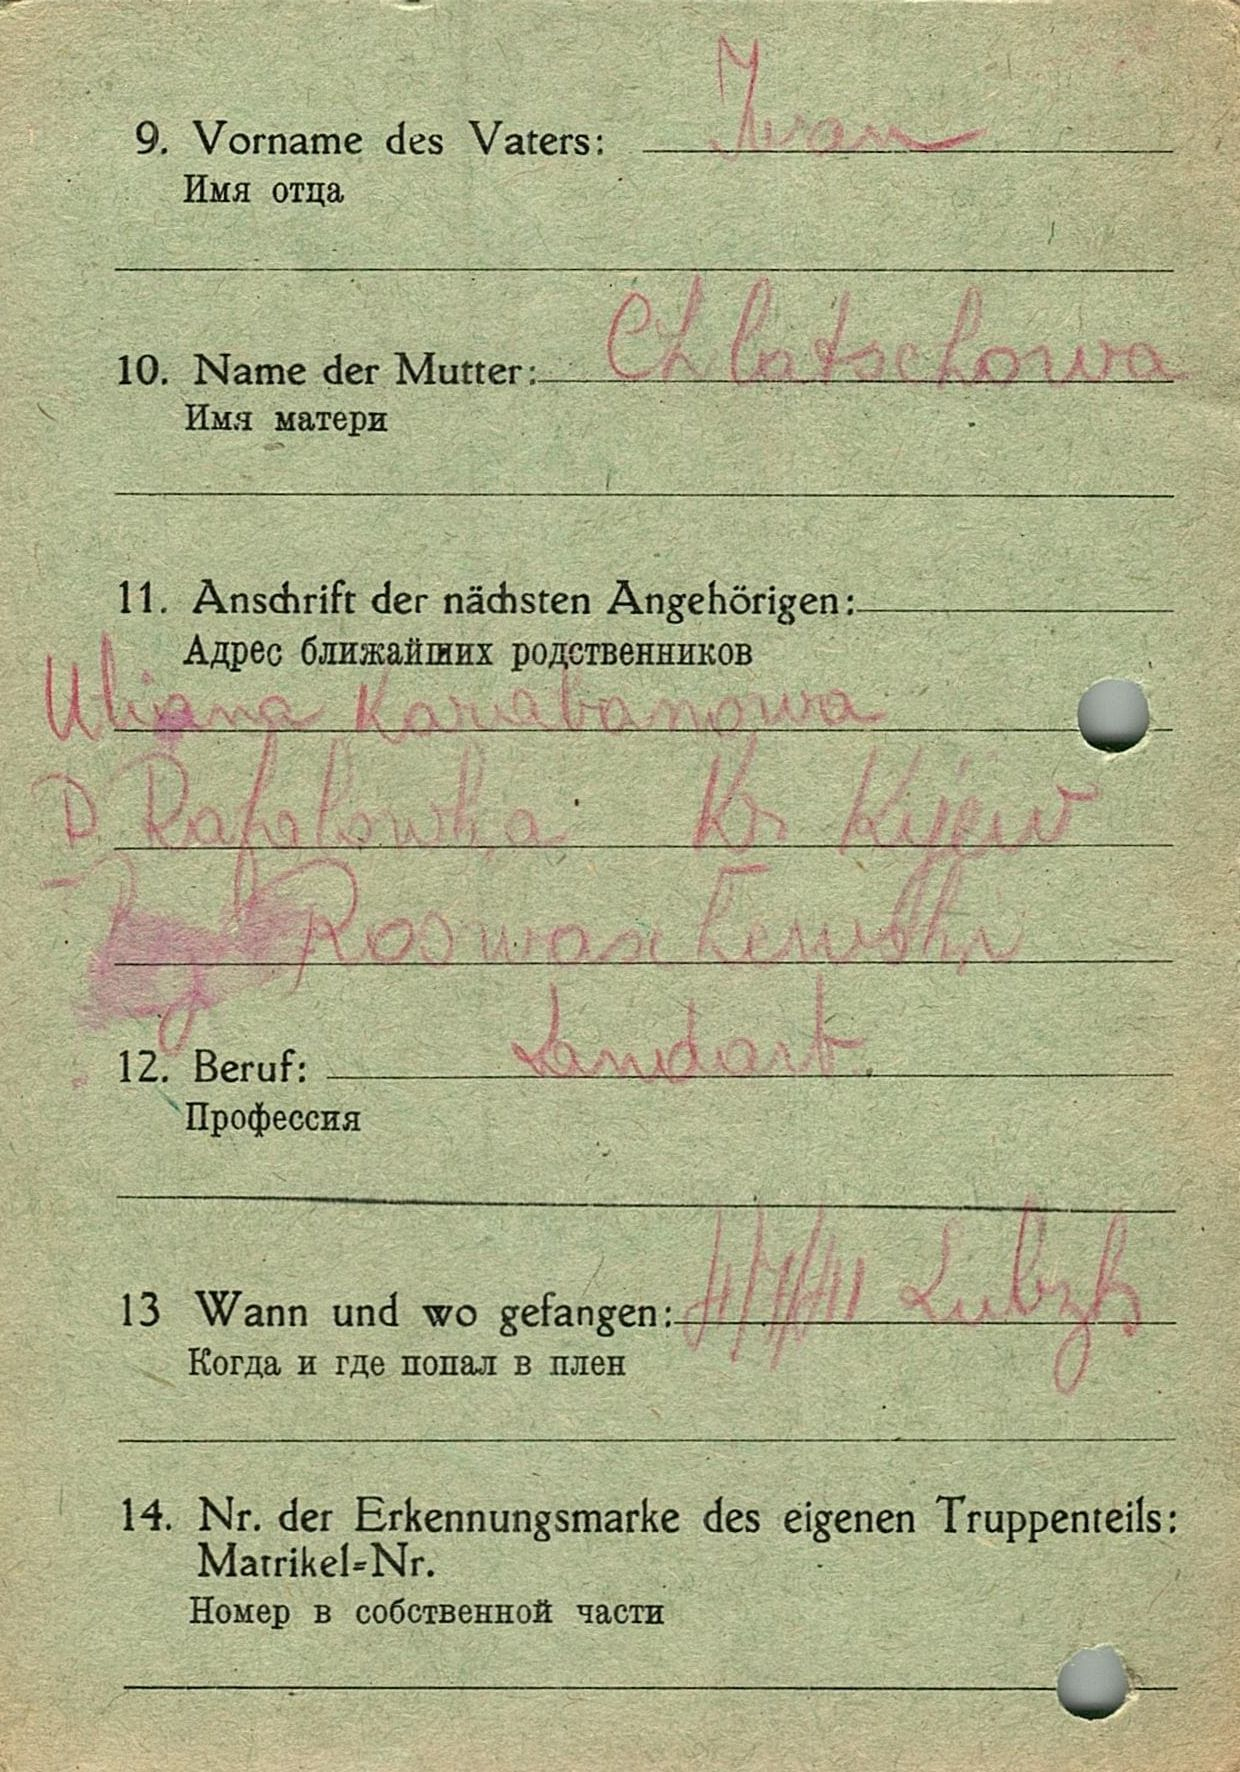 9. Vorname des Vaters: Iwan
Имя отца
10. Name der Mutter: Chlatschowa
Имя матери
11. Anschrift der nächsten Angehörigen:
Адрес ближайших родственников
Uliana Karabanowa
D. Rafalowka Kr. Kijew
Roswaschewski
12. Beruf: Landarb.
Профессия
13 Wann und wo gefangen:
Когда и где попал в плен
14. Nr. der Erkennungsmarke des eigenen Truppenteils:
Matrikel=Nr.
Номер в собственной части